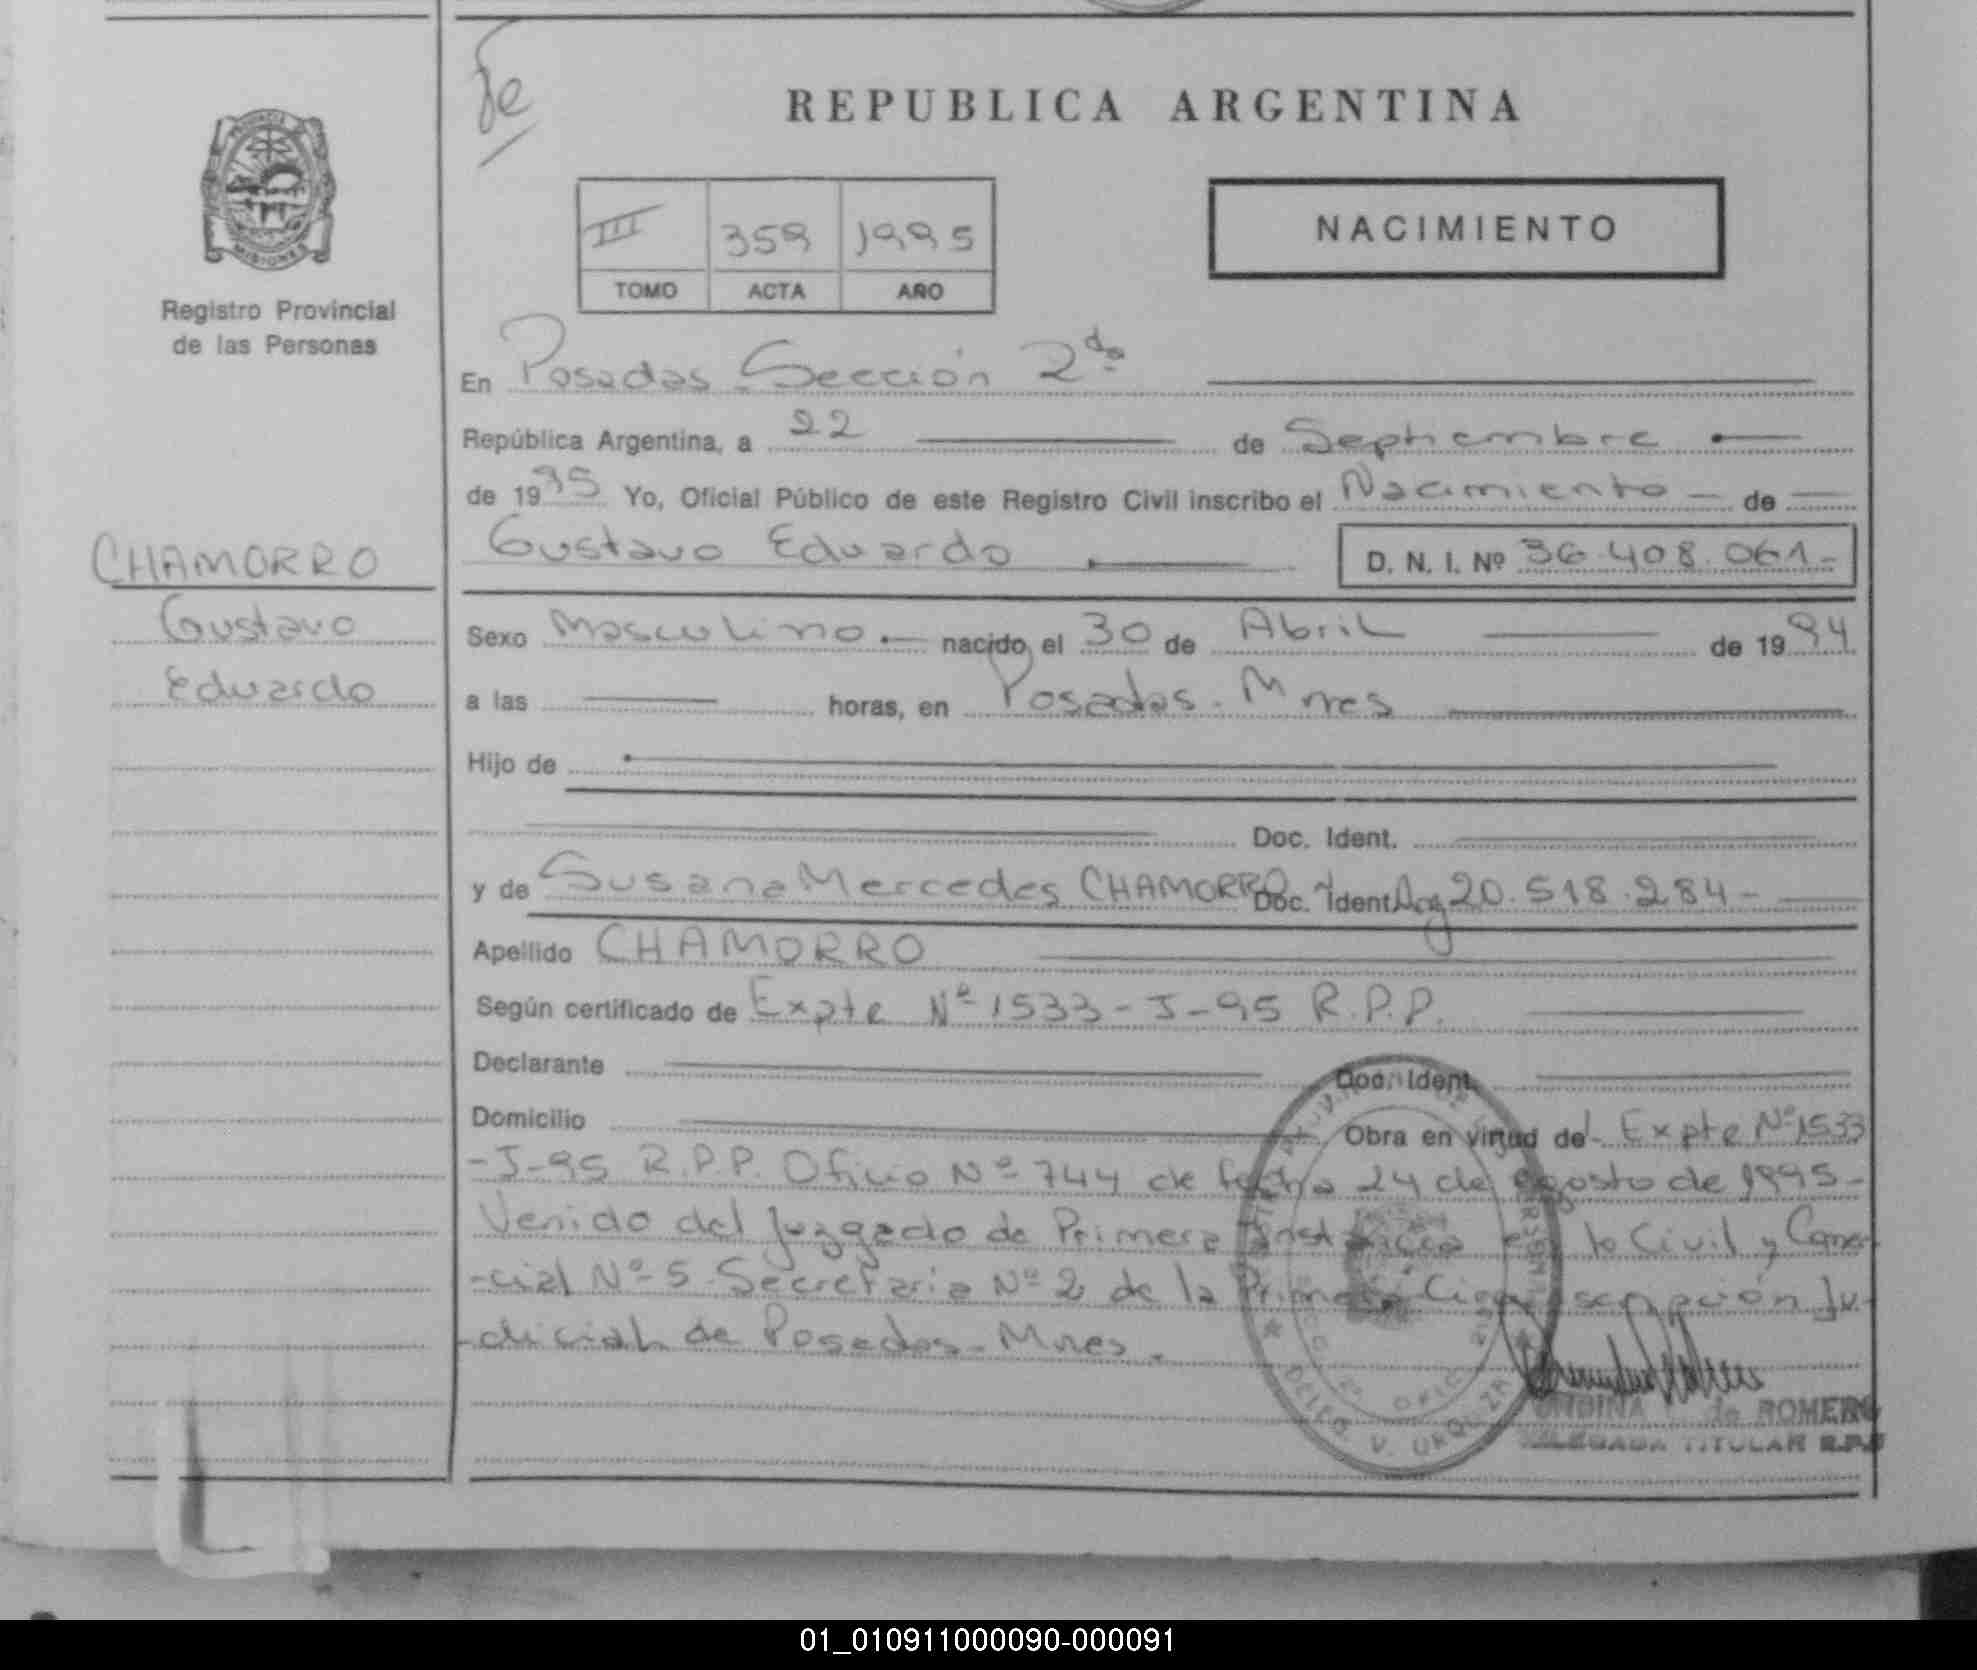 Fe
REPUBLICA ARGENTINA
PROVINCIA DE
MISIONES
Registro Provincial
de las Personas
III 359 1995
TOMO ACTA AÑO
NACIMIENTO
En Posadas - Sección 2da
República Argentina, a 22 de Septiembre
de 1995 Yo, Oficial Público de este Registro Civil inscribo el Nacimiento - de
CHAMORRO
Gustavo
Eduardo
Gustavo Eduardo D. N. I. Nº 36.408.061-
Sexo Masculino.- nacido el 30 de Abril de 1994
a las horas, en Posadas - Mnes
Hijo de
Doc. Ident.
y de Susana Mercedes CHAMORRO Doc. Ident. Arg 20.518.284-
Apellido CHAMORRO
Según certificado de Expte Nº 1533-J-95 R.P.P.
Declarante Doc. Ident.
Domicilio Obra en virtud de Expte Nº 1533
-J-95 R.P.P. Oficio Nº 744 de fecha 24 de agosto de 1995-
Venido del Juzgado de Primera Instancia en lo Civil y Comer-
-cial Nº 5 Secretaria Nº 2 de la Primera Circunscripción Ju-
-dicial de Posadas - Mnes.
V. URQUIZA
de ROMERO
DELEGADA TITULAR R.P.P
01_010911000090-000091